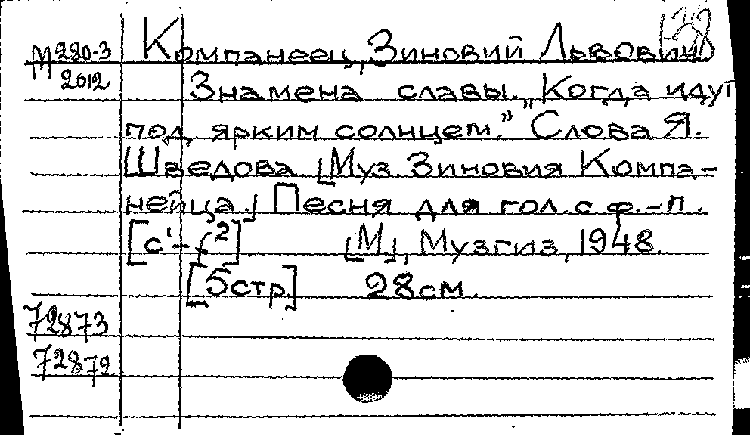 138
М 280-3
2012
Компанеец, Зиновий Львович
Знамена славы. „Когда идут
под ярким солнцем." Слова Я.
Шведова [Муз. Зиновия Компа-
нейца.] Песня для гол. с ф.-п.
[c¹-f²] [М], Музгиз, 1948.
[5стр.] 28см.
72873
72879